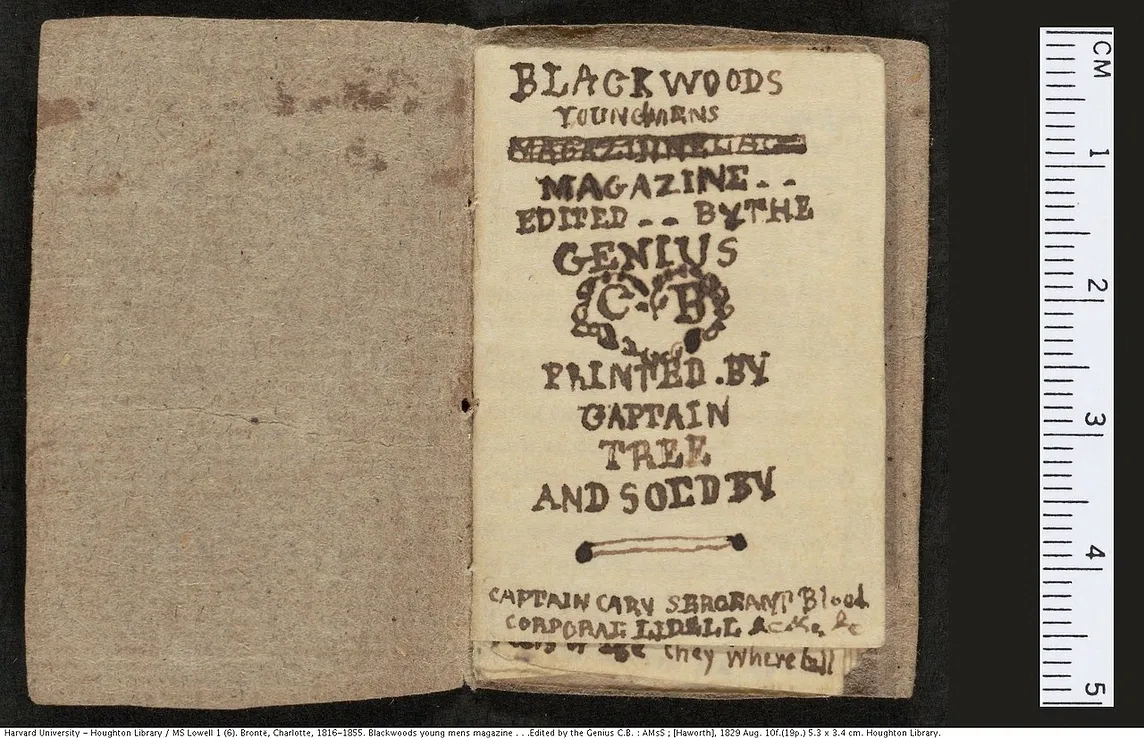 BLACKWOODS
YOUNGMENS
MAGAZINE--
EDITED -- BYTHE
GENIUS
C·B
PRINTED.BY
CAPTAIN
TREE
AND SOLD BY
CAPTAIN CARY SERGEANT Blood
CORPORAL LIDELL &c &c &c
of age they where all
CM
1
2
3
4
5
Harvard University - Houghton Library / MS Lowell 1 (6). Brontë, Charlotte, 1816-1855. Blackwoods young mens magazine . . .Edited by the Genius C.B. : AMsS ; [Haworth], 1829 Aug. 10f.(19p.) 5.3 x 3.4 cm. Houghton Library.